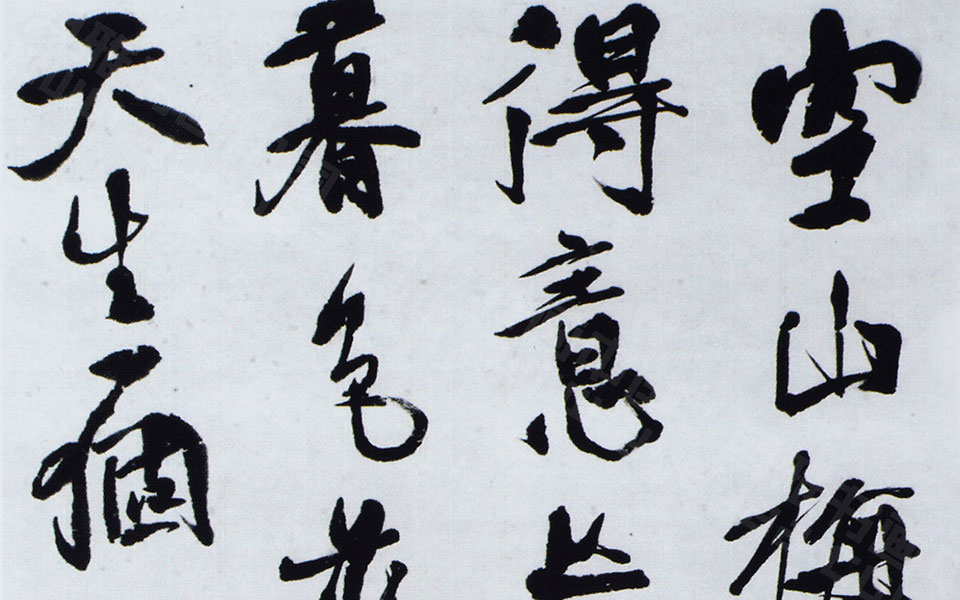 空山梅
得意
暮色
天生一個